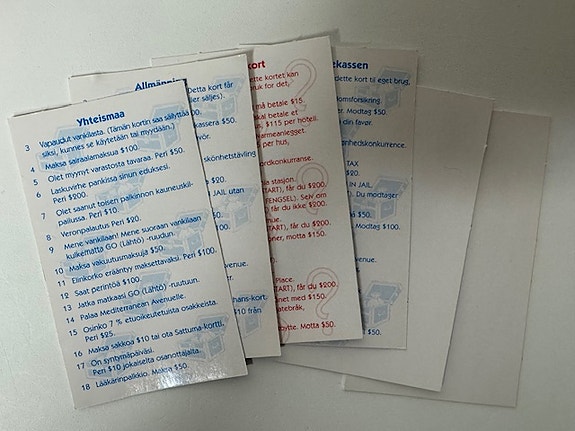 Yhteismaa
3 Vapaudut vankilasta. (Tämän kortin saa säilyttää
siksi, kunnes se käytetään tai myydään.)
4 Maksa sairaalamaksua $100.
5 Olet myynyt varastosta tavaraa. Peri $50.
6 Laskuvirhe pankissa sinun eduksesi.
Peri $200.
7 Olet saanut toisen palkinnon kauneuskil-
pailussa. Peri $10.
8 Veronpalautus Peri $20.
9 Mene vankilaan! Mene suoraan vankilaan
kulkematta GO (Lähtö) -ruudun.
10 Maksa vakuutusmaksuja $50.
11 Elinkorko erääntyy maksettavaksi. Peri $100.
12 Saat perintöä $100.
13 Jatka matkaasi GO (Lähtö) -ruutuun.
14 Palaa Mediterranean Avenuelle.
15 Osinko 7 % etuoikeutetuista osakkeista.
Peri $25.
16 Maksa sakkoa $10 tai ota Sattuma-kortti.
17 On syntymäpäiväsi.
Peri $10 jokaiselta osanottajalta.
18 Lääkärinpalkkio. Maksa $50.
Detta kort får
säljes).
kassera $50.
skönhetstävling
JAIL utan
hans-kort.
$10 från
kort
dette kortet kan
bruk for det,
må betale $15
skal betale et
$115 per hotell.
varmeanlegget
per hus,
ordkonkurranse.
stasjon
START), får du $200.
FENGSEL). Selv om
får du ikke $200.
START), får du $200.
motta $150.
Place.
START), får du $200.
net med $150.
gatebråk,
bytte. Motta $50.
ekassen
dette kort til eget brug,
domsforsikring.
Modtag $50
din favør.
nhedskonkurrence.
TAX
IN JAIL.
Du modtager
Modtag $100.
venue.
$50.